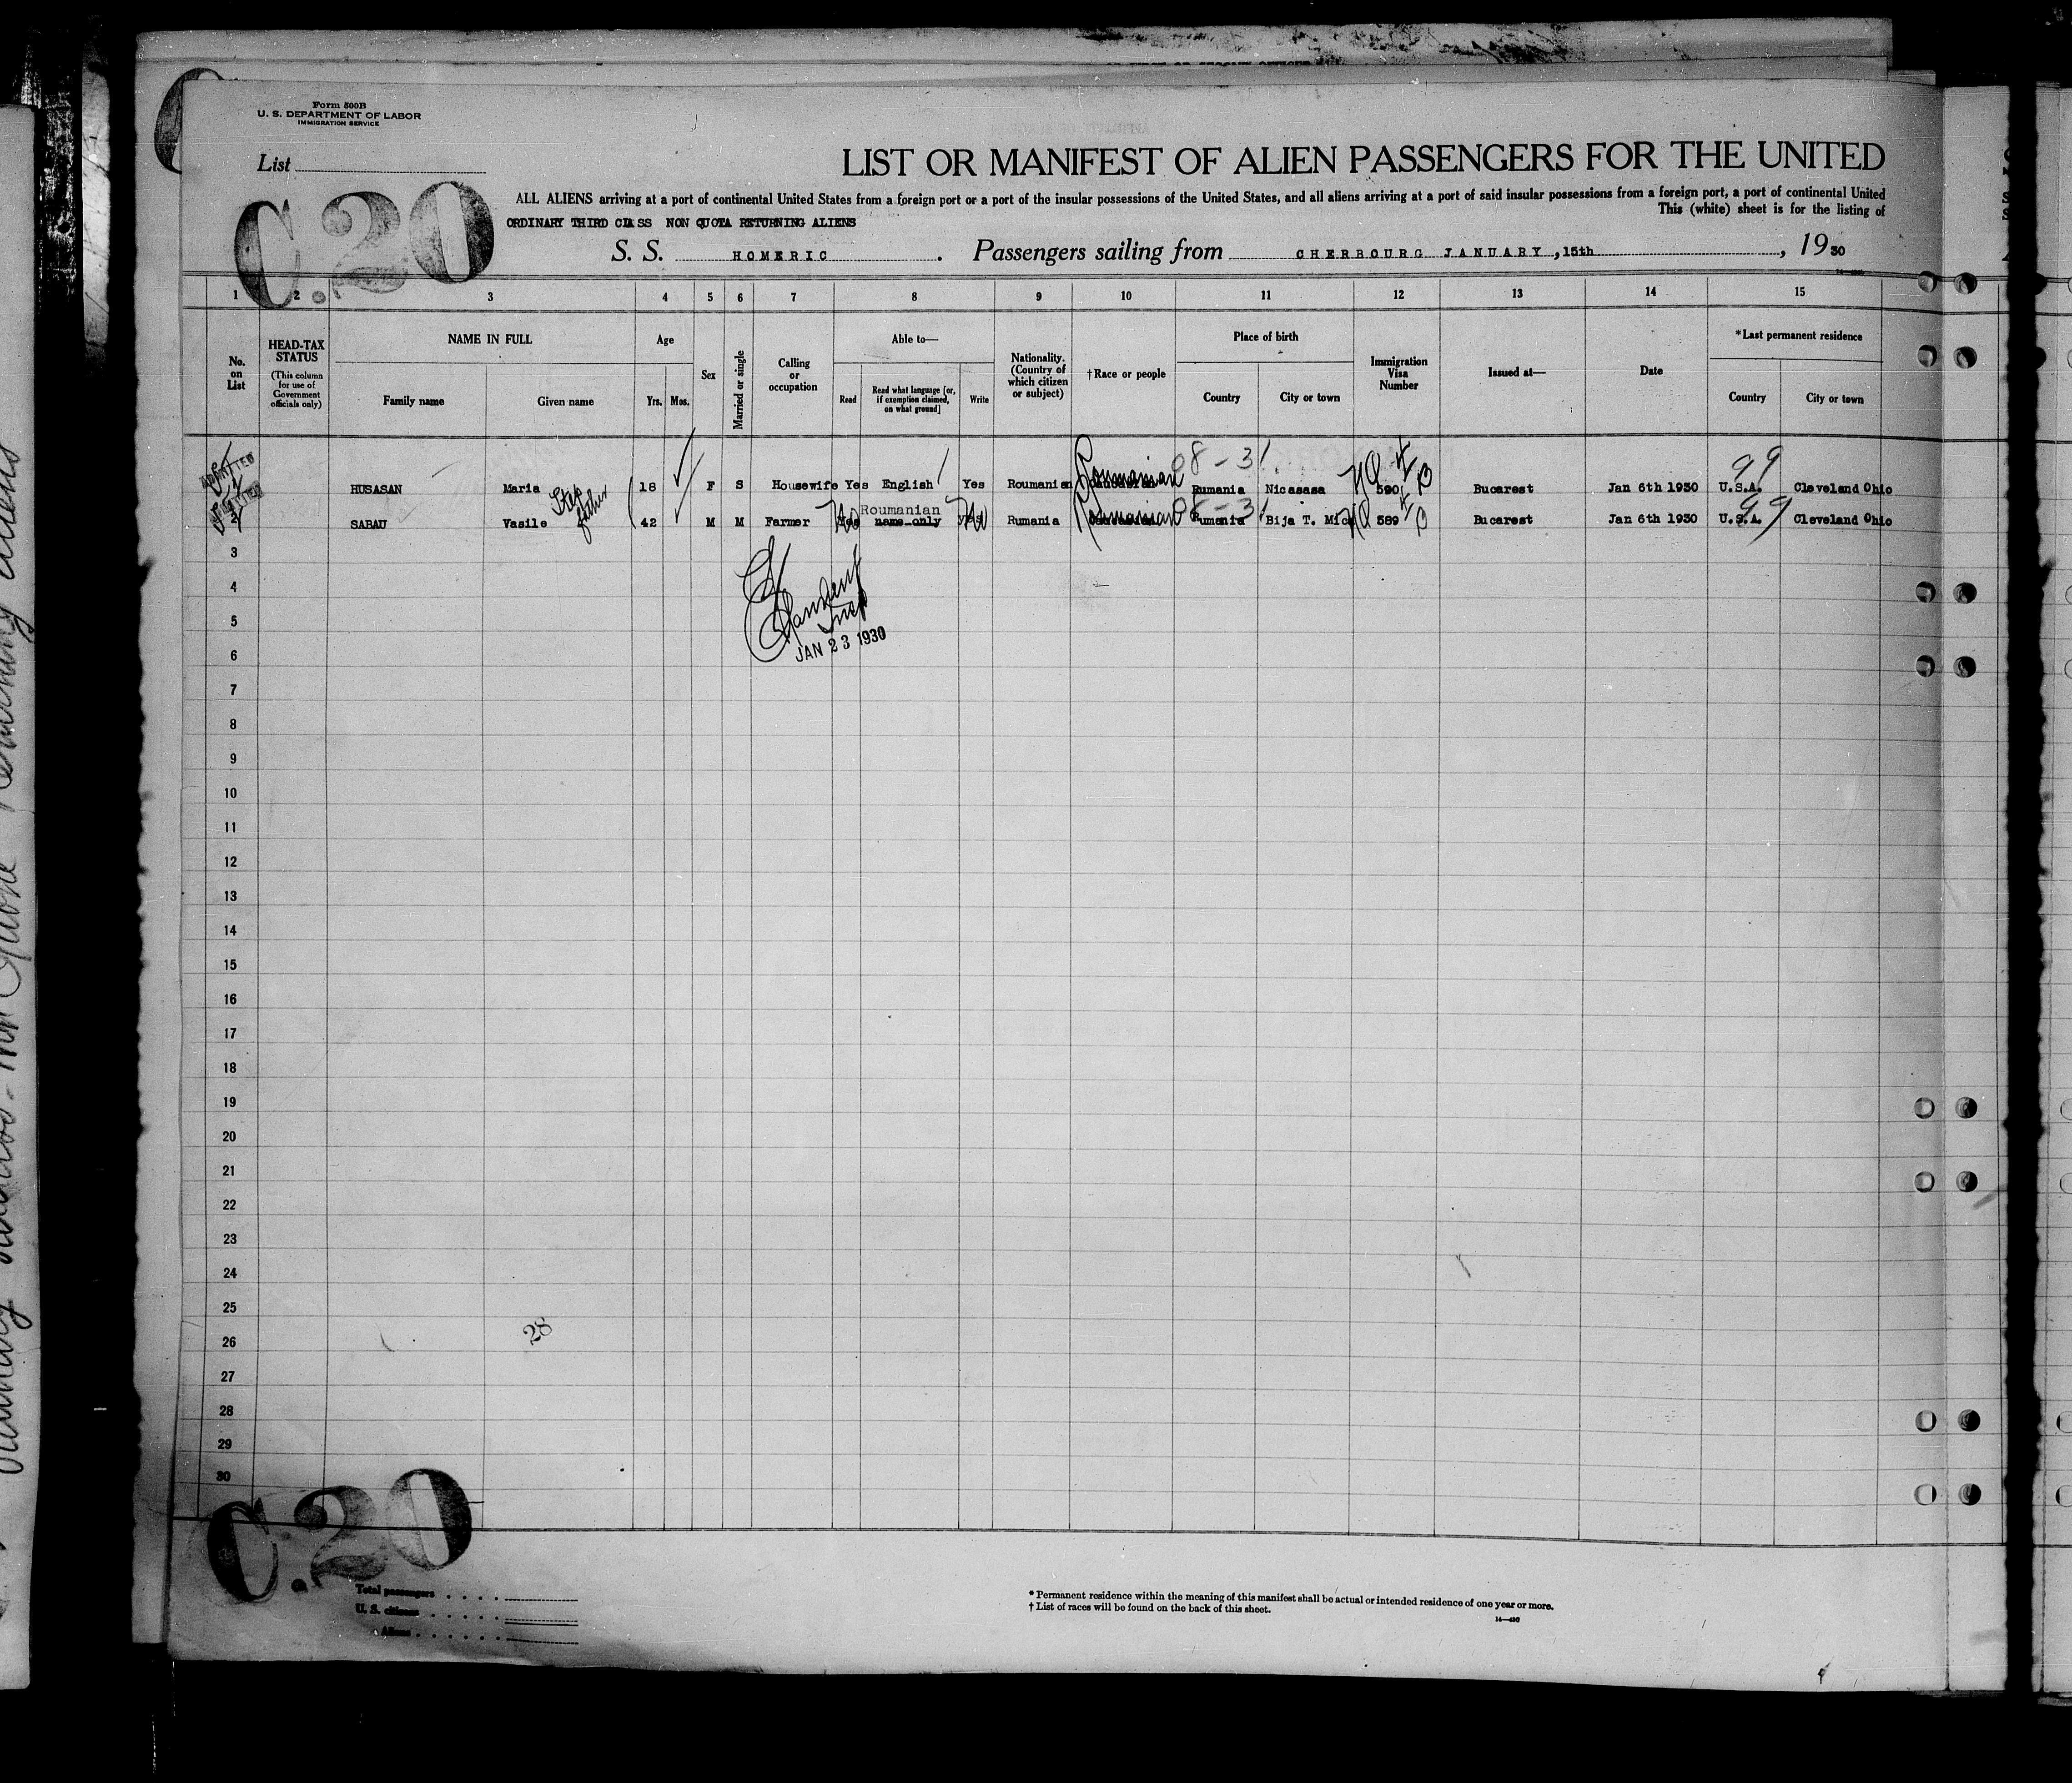 Form 500B
U. S. DEPARTMENT OF LABOR
IMMIGRATION SERVICE
List
C.20
LIST OR MANIFEST OF ALIEN PASSENGERS FOR THE UNITED
ALL ALIENS arriving at a port of continental United States from a foreign port or a port of the insular possessions of the United States, and all aliens arriving at a port of said insular possessions from a foreign port, a port of continental United
This (white) sheet is for the listing of
ORDINARY THIRD CLASS NON QUOTA RETURNING ALIENS
S. S. HOMERIC . Passengers sailing from CHERBOURG JANUARY ,15th , 19 30
1 2 3 4 5 6 7 8 9 10 11 12 13 14 15
No. on List
HEAD-TAX STATUS
(This column for use of Government officials only)
NAME IN FULL
Family name
Given name
Age
Yrs. Mos.
Sex
Married or single
Calling or occupation
Able to—
Read
Read what language [or, if exemption claimed, on what ground]
Write
Nationality. (Country of which citizen or subject)
†Race or people
Place of birth
Country
City or town
Immigration Visa Number
Issued at—
Date
*Last permanent residence
Country
City or town
08-31 99
HUSASAN Maria 18 F S Housewife Yes English Yes Roumanian Roumanian Rumania Nicasasa NQ 590 Bucarest Jan 6th 1930 U.S.A. Cleveland Ohio
Step father
Roumanian 08-31 99
SABAU Vasile 42 M M Farmer name only Rumania Roumanian Rumania Bija T. Mica NQ 589 Bucarest Jan 6th 1930 U.S.A. Cleveland Ohio
3
4
Insp
5
6
JAN 23 1930
7
8
9
10
11
12
13
14
15
16
17
18
19
20
21
22
23
24
25
26
28
27
28
29
30
C.20
Total passengers
U. S. citizens
Aliens
* Permanent residence within the meaning of this manifest shall be actual or intended residence of one year or more.
† List of races will be found on the back of this sheet.